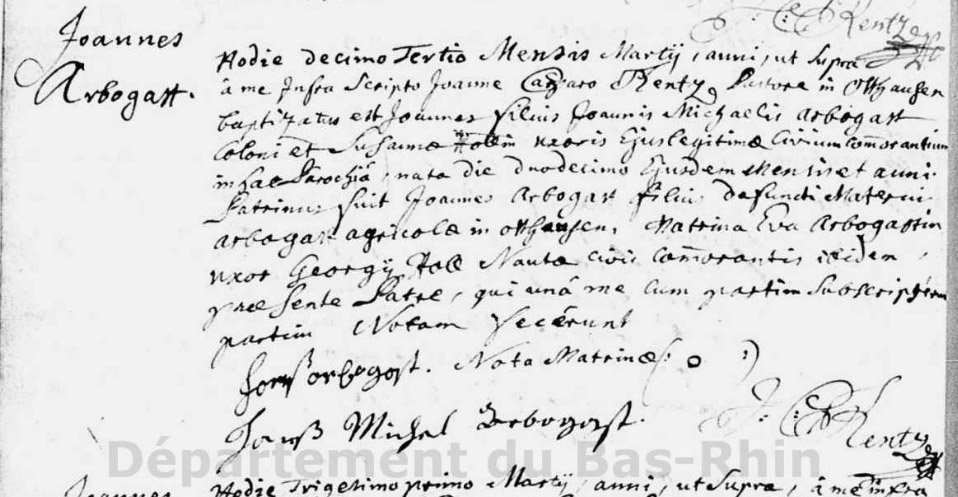 J: C: Rentz
Joannes
Arbogast.
Hodie decimo Tertio Mensis Martij, anni, ut supra
à me Infra Scripto Joanne Casparo Rentz Pastore in Otthausen
baptizatus est Joannes filius Joannis Michaelis Arbogast
Coloni et Susannæ uxoris Ejus legitimæ Civium comorantium
in hac Parochiâ, nata die duodecimo Ejusdem Mensis et anni
Patrinus fuit Joannes Arbogast filius defuncti Materni
Arbogast agricolæ in Otthausen, Matrina Eva Arbogastin
uxor Georgij Nautæ civis Comorantis ibidem,
præsente Patre, qui unâ me cum partim subscripserunt
partim Notam fecerunt
Hanß orbogost. Nota Matrinæ (: o :)
Hanß Michel Arbogast.
J: C: Rentz
Département du Bas-Rhin
Joannes Hodie Trigesimo primo Martij, anni, ut supra, à me infra